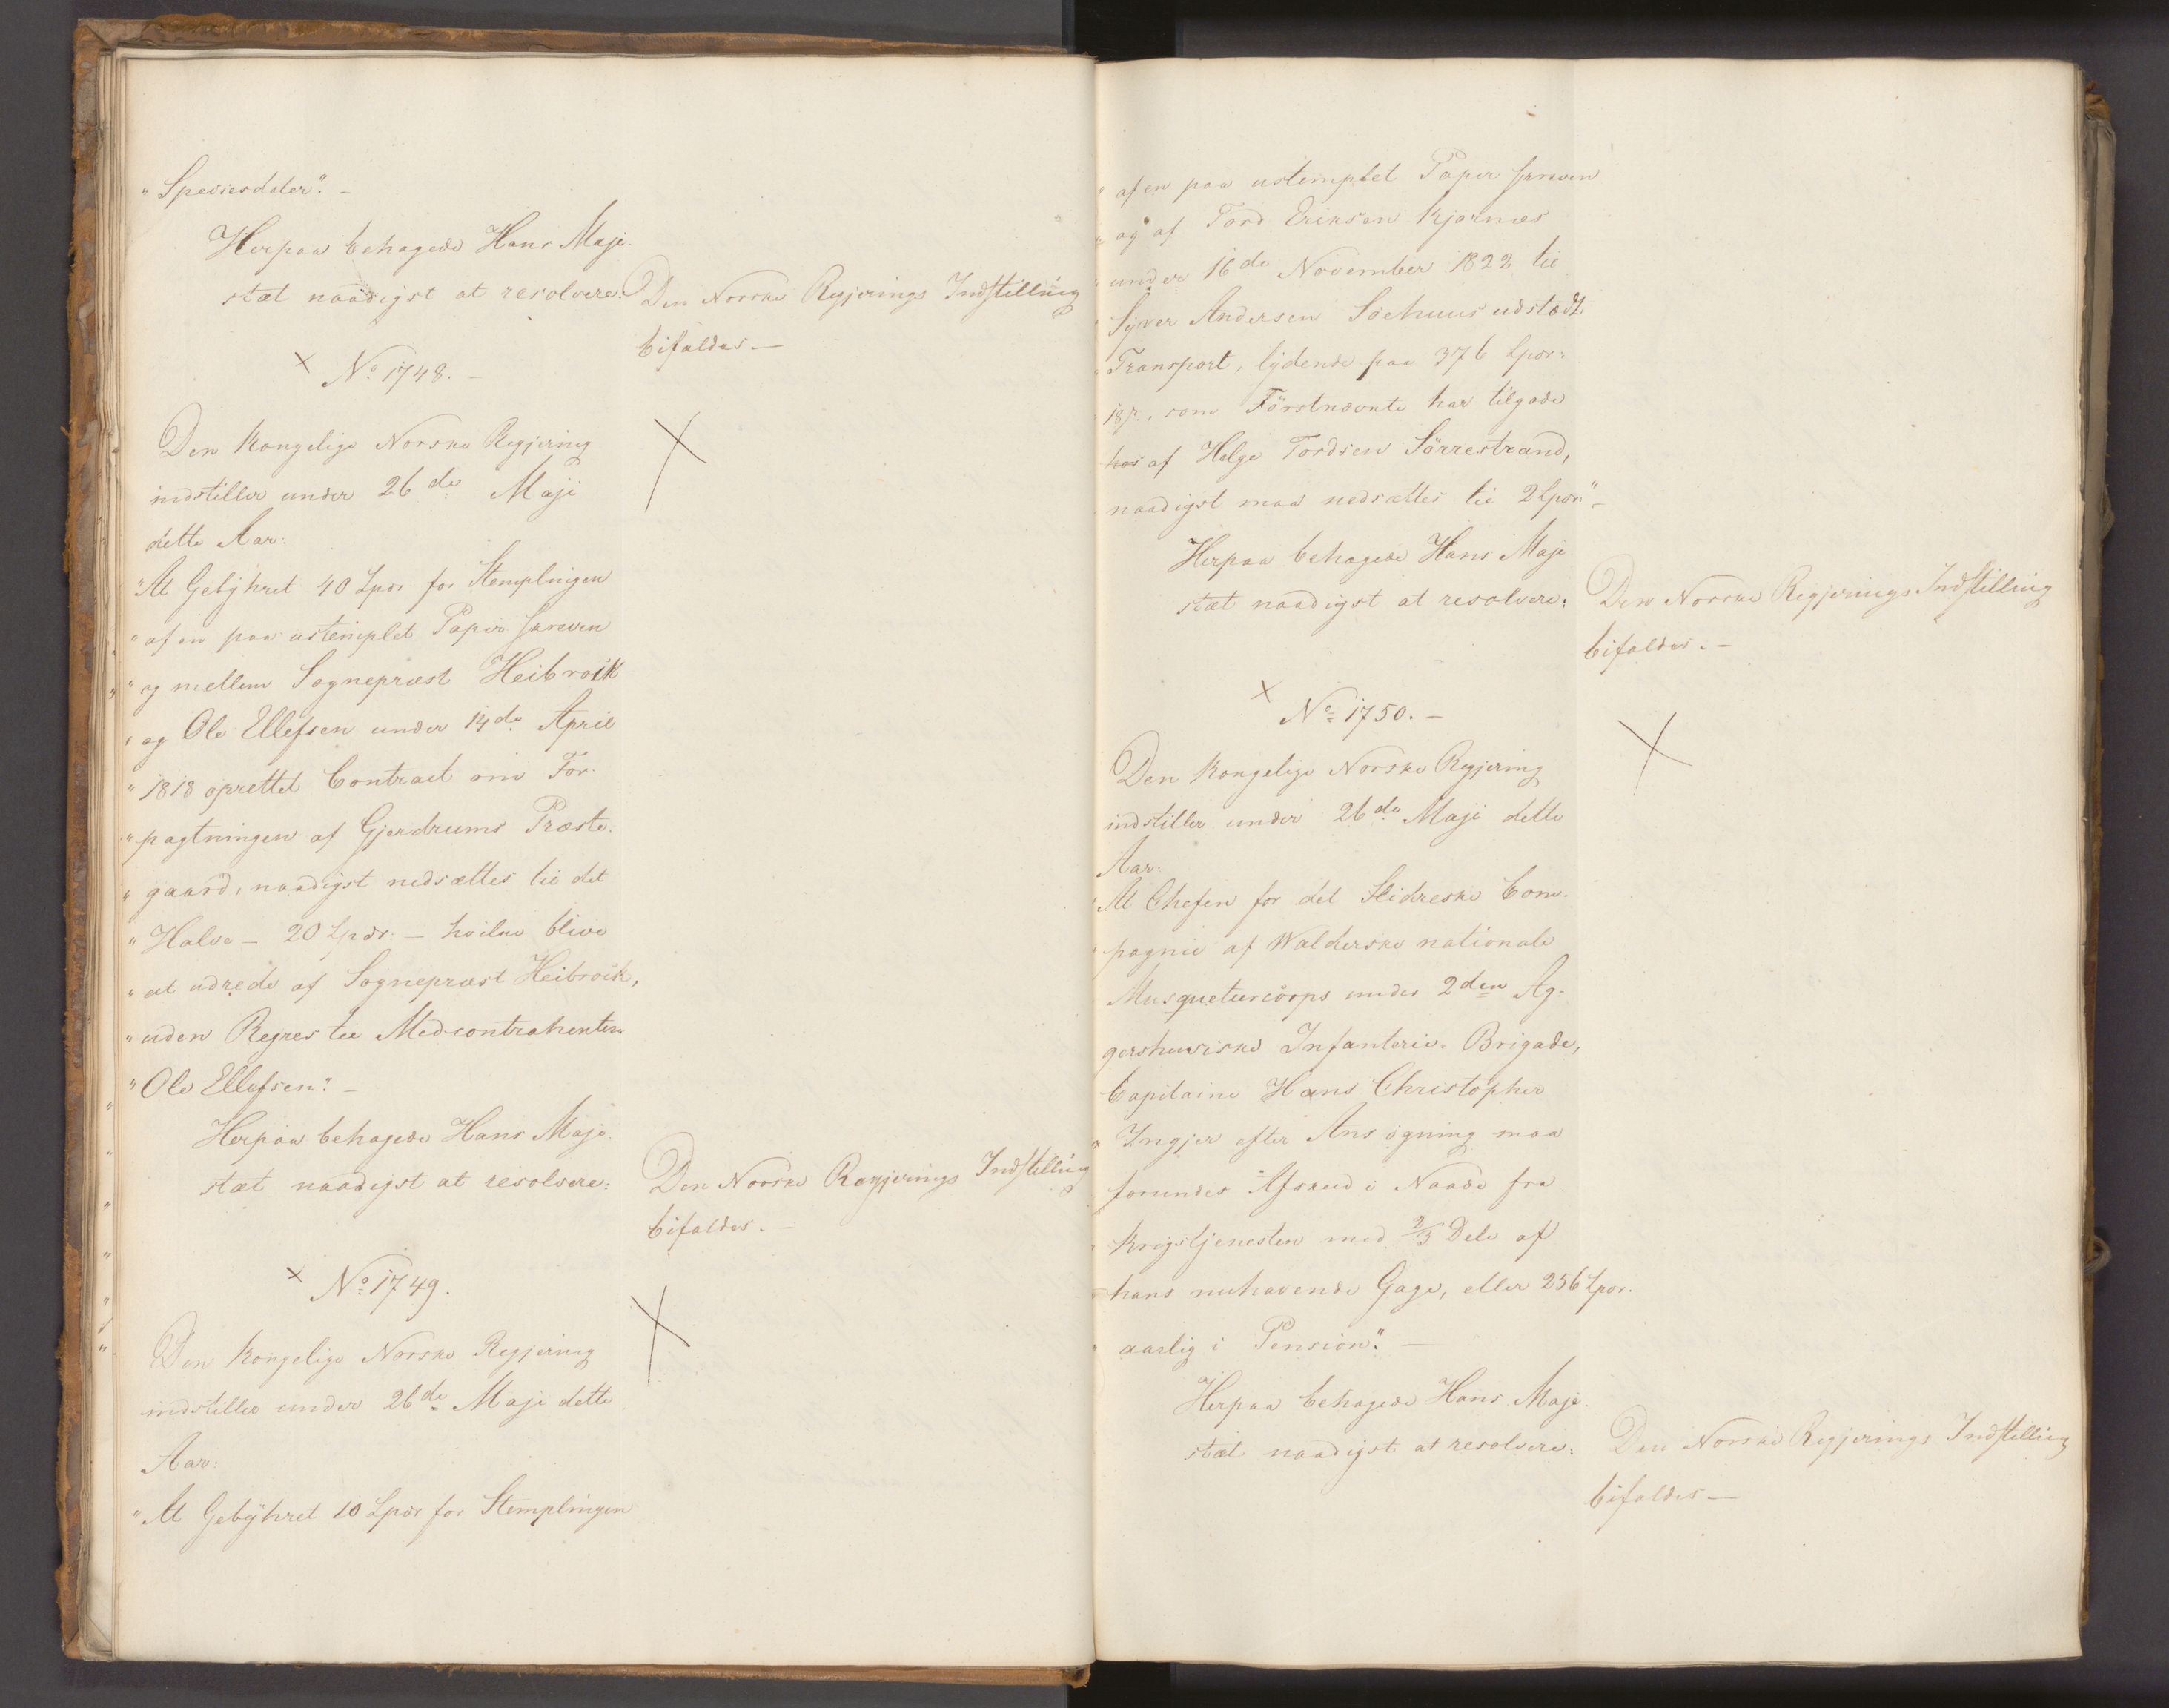 "Speciesdaler". -
Herpaa behagede Hans Maje-
stæt naadigst at resolvere:
Den Norske Regjerings Indstilling
bifaldes. -
× No 1748. -
Den Kongelige Norske Regjering
indstiller under 26de Maji
dette Aar:
"At Gebyhret 40 Spdr for Stemplingen
"af en paa ustemplet Papir skreven
"og mellem Sognepræst Heibroik
"og Ole Ellefsen under 14de April
"1818 oprettet Contract om For-
"pagtningen af Gjerdrums Præste-
"gaard, naadigst nedsættes til det
"Halve - 20 Spdr: - hvilke blive
"at udrede af Sognepræst Heibroik,
"uden Regres til Medcontrahenten
"Ole Ellefsen". -
Herpaa behagede Hans Maje-
stæt naadigst at resolvere:
Den Norske Regjerings Indstilling
bifaldes. -
× No 1749.
Den Kongelige Norske Regjering
indstiller under 26de Maji dette
Aar:
"At Gebyhret 10 Spdr for Stemplingen
"af en paa ustemplet Papir skreven
"og af Tord Eriksen Kjærnæs
"under 16de November 1822 til
"Syver Andersen Söehuus udstædt
"Transport, lydende paa 376 Spdr:
"18 s., som Förstnævnte har tilgode
hos af Helge Tordsen Sörrestrand,
naadigst maa nedsættes til 2 Spdr:" -
Herpaa behagede Hans Maje-
stæt naadigst at resolvere:
Den Norske Regjerings Indstilling
bifaldes. -
× No 1750. -
Den Kongelige Norske Regjering
indstiller under 26de Maji dette
Aar:
"At Chefen for det Slidreske Com-
"pagnie af Walderske nationale
"Musqueteercorps under 2den Ag-
gershuusiske Infanterie-Brigade,
Capitaine Hans Christopher
"Ingjer efter Ansögning maa
forundes Afskeed i Naade fra
"Krigstjenesten med 2/3 Dele af
"hans nuhavende Gage, eller 256 Spdr.
"aarlig i Pension". -
Herpaa behagede Hans Maje-
stæt naadigst at resolvere:
Den Norske Regjerings Indstilling
bifaldes. -